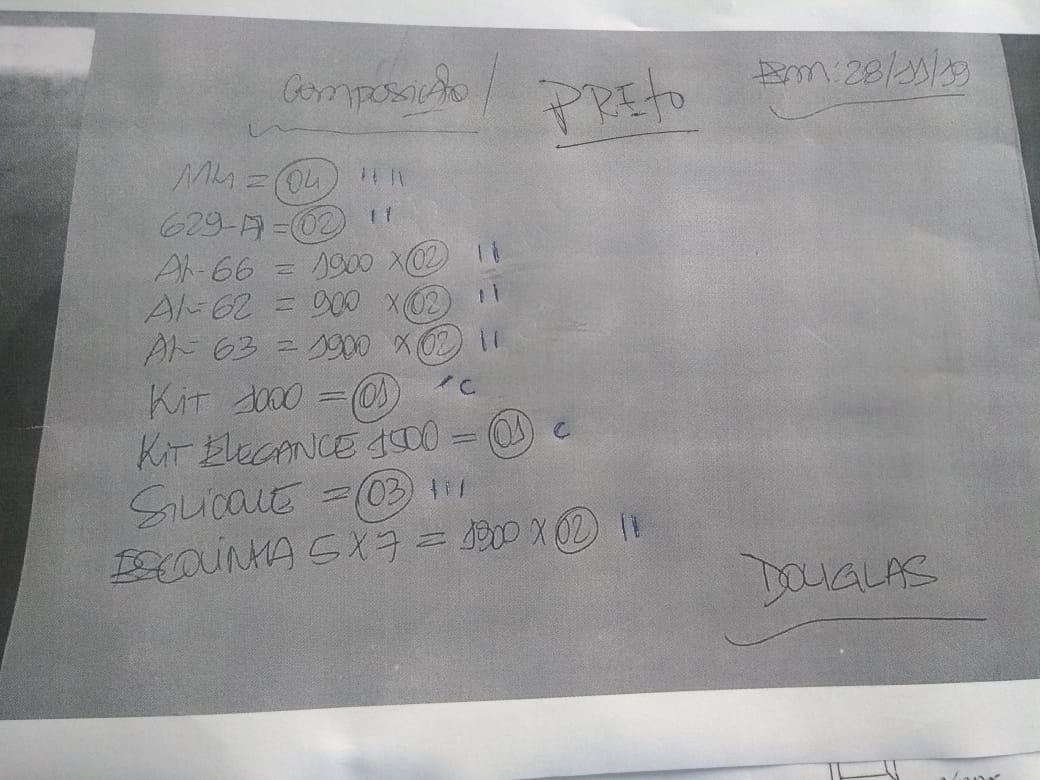 Composição / PREto Em: 28/11/19
114 = 04 ıı ıı
629-A = 02 ıı
AL-66 = 1900 x 02 ıı
AL=62 = 900 x 02 ıı
AL=63 = 1900 x 02 ıı
Kit 1000 = 01 C
KiT ELEGANCE 1500 = 01 C
SiLiCOLE = 03 ııı
ESCOLINHA 5X7 = 1900 x 02 ıı
DOUGLAS